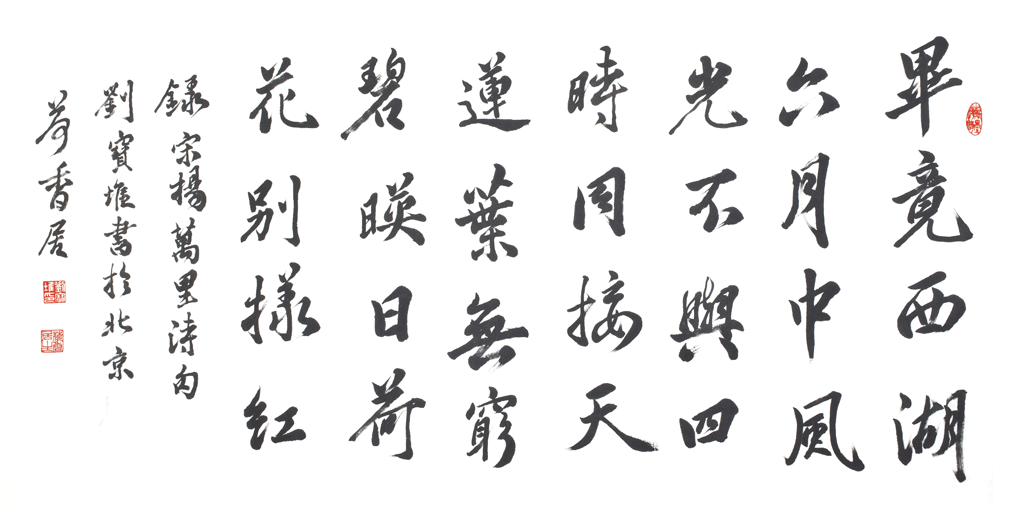 畢竟西湖
六月中風
光不與四
時同接天
蓮葉無窮
碧暎日荷
花别樣紅
錄宋楊萬里詩句
劉寶堆書於北京
荷香居